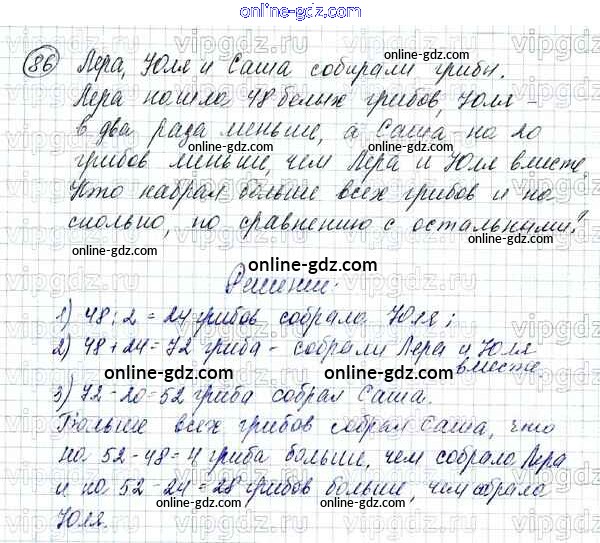 online-gdz.com
86 Лера, Юля и Саша собирали грибы.
Лера нашла 48 белых грибов, Юля -
в два раза меньше, а Саша - на 20
грибов меньше, чем Лера и Юля вместе.
Кто набрал больше всех грибов и на
сколько, по сравнению с остальными?
Решение:
1) 48 : 2 = 24 грибов собрала Юля;
2) 48 + 24 = 72 гриба - собрали Лера и Юля
вместе
3) 72 - 20 = 52 гриба собрал Саша.
Больше всех грибов собрал Саша, что
на 52 - 48 = 4 гриба больше, чем собрала Лера
и на 52 - 24 = 28 грибов больше, чем собрала
Юля.